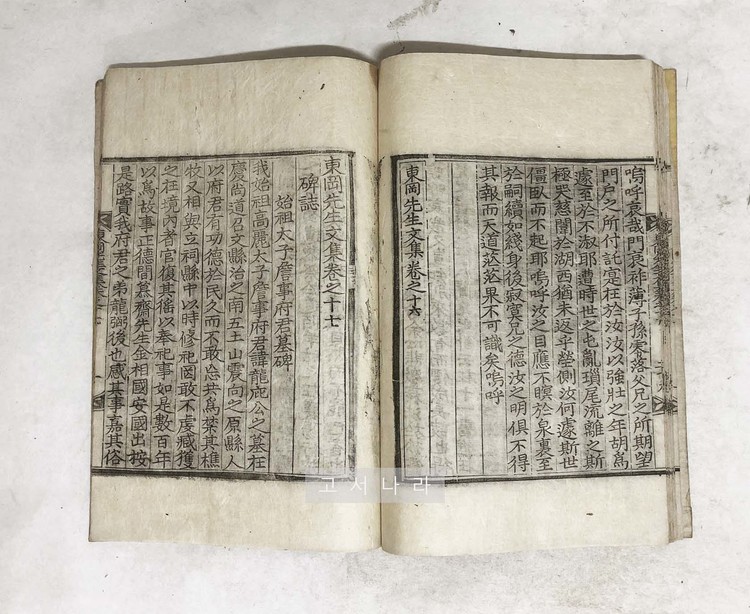 嗚呼哀哉門衰祚薄子孫零落父兄之所期望
門戶之所付託寔在於汝汝以強壯之年胡爲
遽至於不淑耶遭時世之屯亂瑣尾流離之斯
極哭慈闈於湖西猶未返乎塋側汝何遽斯世
僵臥而不起耶嗚呼汝之目應不瞑於泉裏至
於嗣續如綫身後寂寞兄之德汝之明俱不得
其報而天道茫茫果不可識矣嗚呼
東岡先生文集卷之十六
東岡先生文集卷之十七
碑誌
始祖太子詹事府君墓碑
我始祖高麗太子詹事府君諱龍庇公之墓在
慶尙道召文縣治之南五土山震向之原縣人
以府君有功德於民久而不敢忘共爲禁其樵
牧又相與立祠縣中以時修祀罔敢不虔臧獲
之在境內者官復其徭以奉祀事如是數百年
以爲故事正德間慕齋先生金相國安國出按
是路實我府君之弟龍弼後也感其事嘉其俗
고서나라